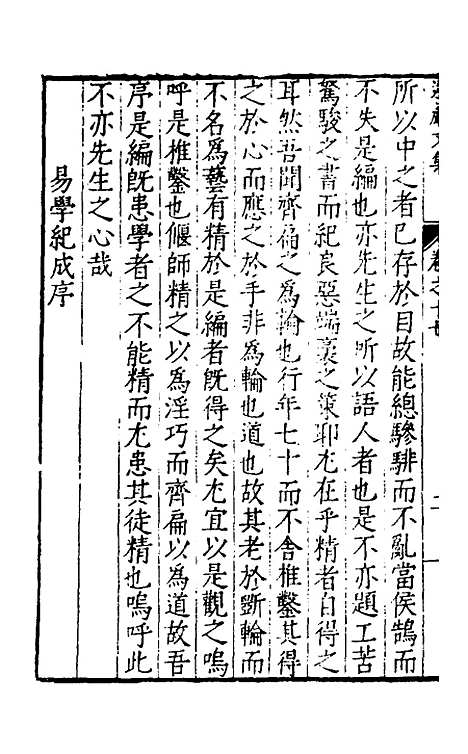 所以中之者已存於目故能總驂騑而不亂當侯鵠而
不失是編也亦先生之所以語人者也是不亦題工苦
駑駿之書而紀良惡端衺之策耶尤在乎精者自得之
耳然吾聞齊扁之為輪也行年七十而不舍椎鑿其得
之於心而應之於手非為輪也道也故其老於斲輪而
不名為藝有精於是編者旣得之矣尤宜以是觀之嗚
呼是椎鑿也偃師精之以為淫巧而齊扁以為道故吾
序是編旣患學者之不能精而尤患其徒精也嗚呼此
不亦先生之心哉
易學紀成序